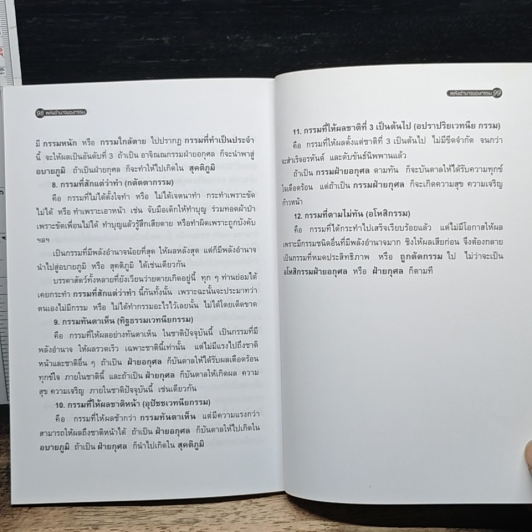 98 พลังอำนาจของกรรม
มี กรรมหนัก หรือ กรรมใกล้ตาย ไปปรากฏ กรรมที่ทำเป็นประจำ
นี้ จะให้ผลเป็นอันดับที่ 3 ถ้าเป็น อาจิณณกรรมฝ่ายอกุศล ก็จะนำพาสู่
อบายภูมิ ถ้าเป็นฝ่ายกุศล ก็จะทำให้ไปเกิดใน สุคติภูมิ
8. กรรมที่สักแต่ว่าทำ (กตัตตากรรม)
คือ กรรมที่ไม่ได้ตั้งใจทำ หรือ ไม่ได้เจตนาทำ กระทำเพราะขัด
ไม่ได้ หรือ ทำเพราะเอาหน้า เช่น จับมือเด็กให้ทำบุญ ร่วมทอดผ้าป่า
เพราะขัดเพื่อนไม่ได้ ทำบุญแล้วรู้สึกเสียดาย หรือทำผิดเพราะถูกบังคับ
ฯลฯ
เป็นกรรมที่มีพลังอำนาจน้อยที่สุด ให้ผลหลังสุด แต่ก็มีพลังอำนาจ
นำไปสู่อบายภูมิ หรือ สุคติภูมิ ได้เช่นเดียวกัน
บรรดาสัตว์ทั้งหลายที่ยังเวียนว่ายตายเกิดอยู่นี้ ทุก ๆ ท่านย่อมได้
เคยกระทำ กรรมที่สักแต่ว่าทำ นี้กันทั้งนั้น เพราะฉะนั้นจะประมาทว่า
ตนเองไม่มีกรรม หรือ ไม่ได้ทำกรรมอะไรไว้เลยนั้น ไม่ได้โดยเด็ดขาด
9. กรรมทันตาเห็น (ทิฏฐธรรมเวทนียกรรม)
คือ กรรมที่ให้ผลอย่างทันตาเห็น ในชาติปัจจุบันนี้ เป็นกรรมที่มี
พลังอำนาจ ให้ผลรวดเร็ว เฉพาะชาตินี้เท่านั้น แต่ไม่มีแรงไปถึงชาติ
หน้าและชาติอื่น ๆ ถ้าเป็น ฝ่ายอกุศล ก็บันดาลให้ได้รับผลเดือดร้อน
ทุกข์ใจ ภายในชาตินี้ และถ้าเป็น ฝ่ายกุศล ก็บันดาลให้เกิดผล ความ
สุข ความเจริญ ภายในชาติปัจจุบันนี้ เช่นเดียวกัน
10. กรรมที่ให้ผลชาติหน้า (อุปัชชเวทนียกรรม)
คือ กรรมที่ให้ผลช้ากว่า กรรมทันตาเห็น แต่มีความแรงกว่า
สามารถให้ผลถึงชาติหน้าได้ ถ้าเป็น ฝ่ายอกุศล ก็บันดาลให้ไปเกิดใน
อบายภูมิ ถ้าเป็น ฝ่ายกุศล ก็นำไปเกิดใน สุคติภูมิ
พลังอำนาจของกรรม 99
11. กรรมที่ให้ผลชาติที่ 3 เป็นต้นไป (อปราปริยเวทนีย กรรม)
คือ กรรมที่ให้ผลตั้งแต่ชาติที่ 3 เป็นต้นไป ไม่มีขีดจำกัด จนกว่า
จะสำเร็จอรหันต์ และดับขันธ์นิพพานแล้ว
ถ้าเป็น กรรมฝ่ายอกุศล ตามทัน ก็จะบันดาลให้ได้รับความทุกข์
ใจเดือดร้อน แต่ถ้าเป็น กรรมฝ่ายกุศล ก็จะเกิดความสุข ความเจริญ
ก้าวหน้า
12. กรรมที่ตามไม่ทัน (อโหสิกรรม)
คือ กรรมที่ได้กระทำไปเสร็จเรียบร้อยแล้ว แต่ไม่มีโอกาสให้ผล
เพราะมีกรรมชนิดอื่นที่มีพลังอำนาจมาก ชิงให้ผลเสียก่อน จึงต้องกลาย
เป็นกรรมที่หมดประสิทธิภาพ หรือ ถูกตัดกรรม ไป ไม่ว่าจะเป็น
อโหสิกรรมฝ่ายอกุศล หรือ ฝ่ายกุศล ก็ตามที